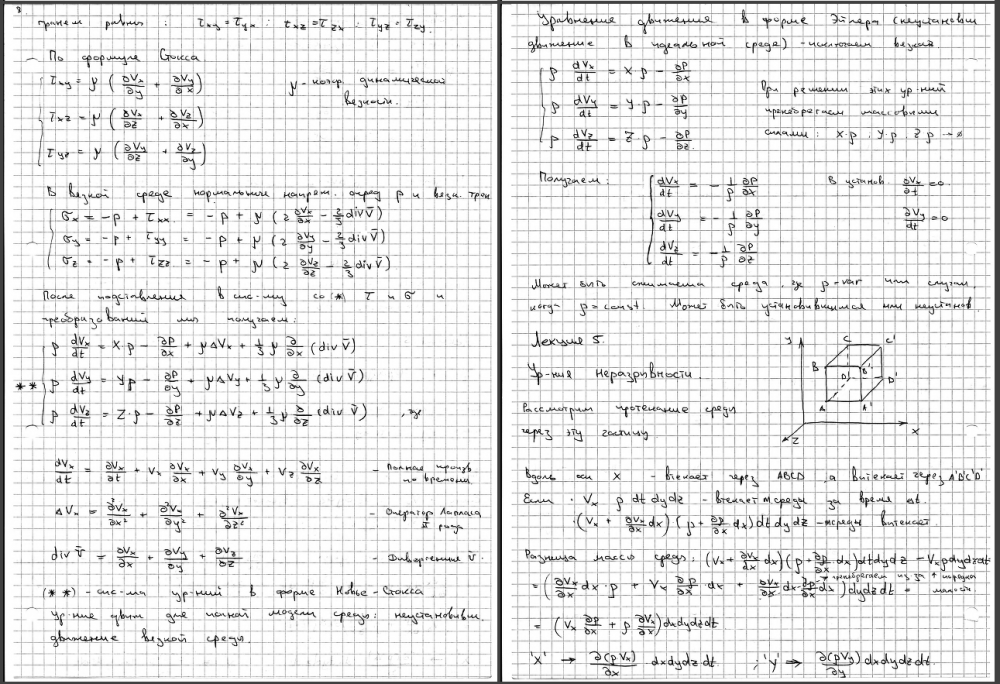 8
граней равны : τxy = τyx ; τxz = τzx ; τyz = τzy.
По формуле Стокса
τxy = μ (∂Vx/∂y + ∂Vy/∂x)
μ - коэф. динамической
вязкости.
τxz = μ (∂Vx/∂z + ∂Vz/∂x)
τyz = μ (∂Vy/∂z + ∂Vz/∂y)
В вязкой среде нормальные напряж. опред p и вязк. трен
σx = -p + τxx = -p + μ (2 ∂Vx/∂x - 2/3 div V̄)
σy = -p + τyy = -p + μ (2 ∂Vy/∂y - 2/3 div V̄)
σz = -p + τzz = -p + μ (2 ∂Vz/∂z - 2/3 div V̄)
После подставления в сис-му со (*) τ и σ и
преобразований мы получаем:
ρ dVx/dt = Xρ - ∂P/∂x + μΔVx + 1/3 μ ∂/∂x (div V̄)
** ρ dVy/dt = Yρ - ∂P/∂y + μΔVy + 1/3 μ ∂/∂y (div V̄)
ρ dVz/dt = Z·ρ - ∂P/∂z + μΔVz + 1/3 μ ∂/∂z (div V̄) , где
dVx/dt = ∂Vx/∂t + Vx ∂Vx/∂x + Vy ∂Vx/∂y + Vz ∂Vx/∂z - Полная произв.
по времени
ΔVx = ∂²Vx/∂x² + ∂²Vx/∂y² + ∂²Vx/∂z² - Оператор Лапласа
II рода
div V̄ = ∂Vx/∂x + ∂Vy/∂y + ∂Vz/∂z - Дивергенция V̄.
(**) - сис-ма ур-ний в форме Новье - Стокса
ур-ние движ. для полной модели среды: неустановивш.
движение вязкой среды.
Уравнение движения в форме Эйлера (неустановивш
движение в идеальной среде) - исключаем вязкой.
ρ dVx/dt = X·ρ - ∂P/∂x
ρ dVy/dt = Y·ρ - ∂P/∂y
ρ dVz/dt = Z·ρ - ∂P/∂z.
При решении этих ур-ний
пренебрегаем массовыми
силами: X·ρ, Y·ρ, Zρ → 0
Получаем:
dVx/dt = - 1/ρ ∂P/∂x
В установ. ∂Vx/∂t = 0.
dVy/dt = - 1/ρ ∂P/∂y
∂Vy/dt = 0
dVz/dt = - 1/ρ ∂P/∂z
Может быть сжимаема среда, где ρ-var или случаи,
когда ρ = const. Может быть установившимся или неустанов.
Лекция 5.
Ур-ния Неразрывности.
Рассмотрим протекание среды
через эту частицу
Y
C
C'
B
B'
D
D'
A
A'
X
Z
Вдоль оси X - втекает через ABCD, а вытекает через A'B'C'D'
Если · Vx ρ dt dy dz - втекает m среды за время dt.
· (Vx + ∂Vx/∂x dx) (ρ + ∂ρ/∂x dx) dt dy dz - m среды вытекает.
Разница массы среды: (Vx + ∂Vx/∂x dx)(ρ + ∂ρ/∂x dx) dt dy dz - Vx ρ dy dz dt
= (∂Vx/∂x dx · ρ + Vx ∂ρ/∂x dx + ∂Vx/∂x dx · ∂ρ/∂x dx) dy dz dt =
пренебрегаем из за порядка
малости
= (Vx ∂ρ/∂x + ρ ∂Vx/∂x) dx dy dz dt
'X' → ∂(ρVx)/∂x dx dy dz dt. ; 'Y' → ∂(ρVy)/∂y dx dy dz dt.